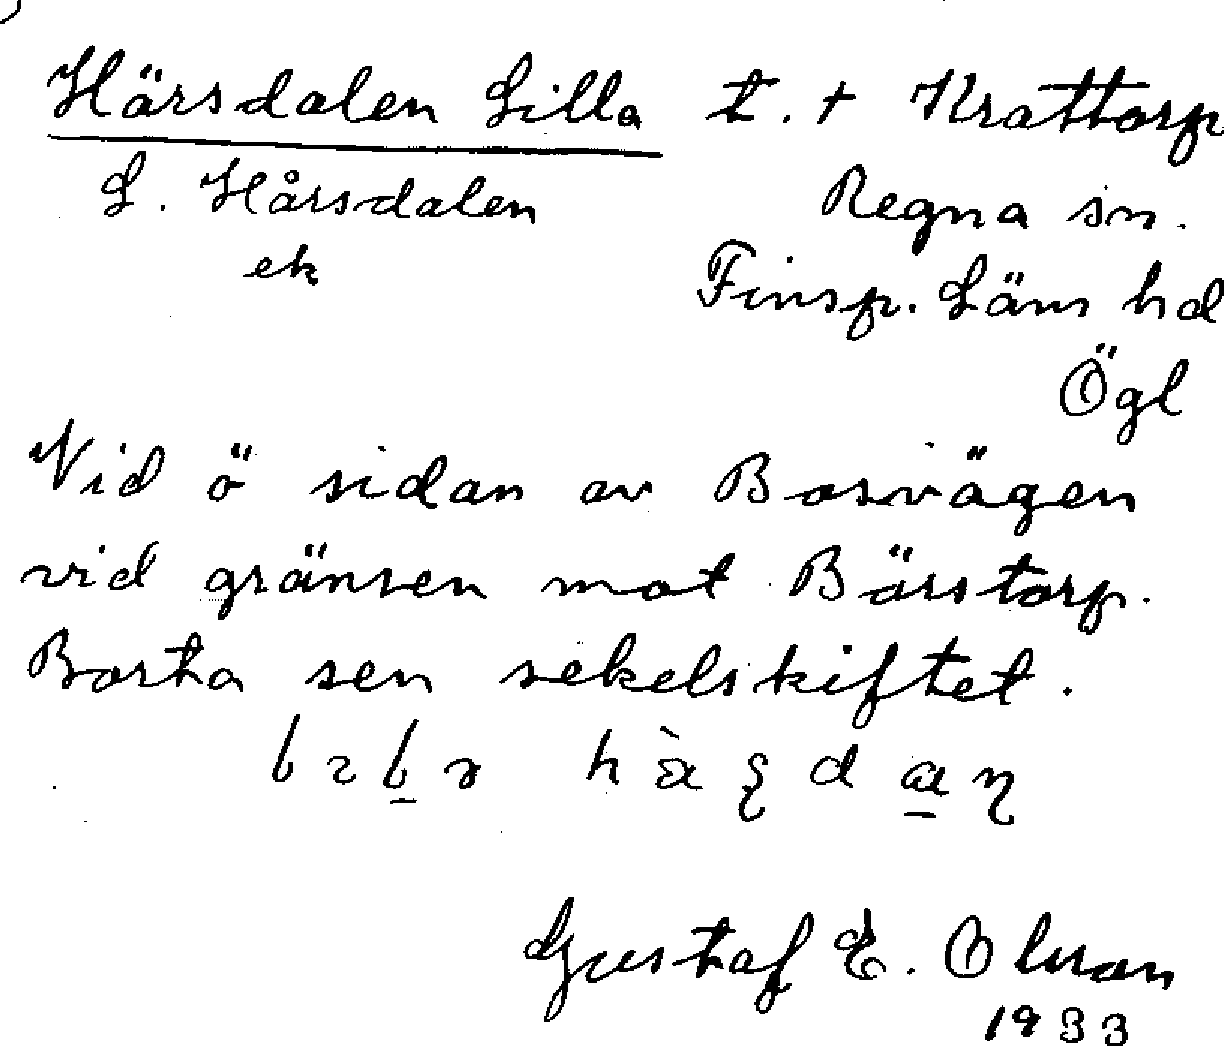 Härsdalen Lilla t. + Krattorp
L. Hårsdalen Regna sn.
ek Finsp. Läns hd
Ögl
Vid ö sidan av Bosvägen
vid gränsen mot Bärstorp.
Borta sen sekelskiftet.
Gustaf E. Olsson
1933